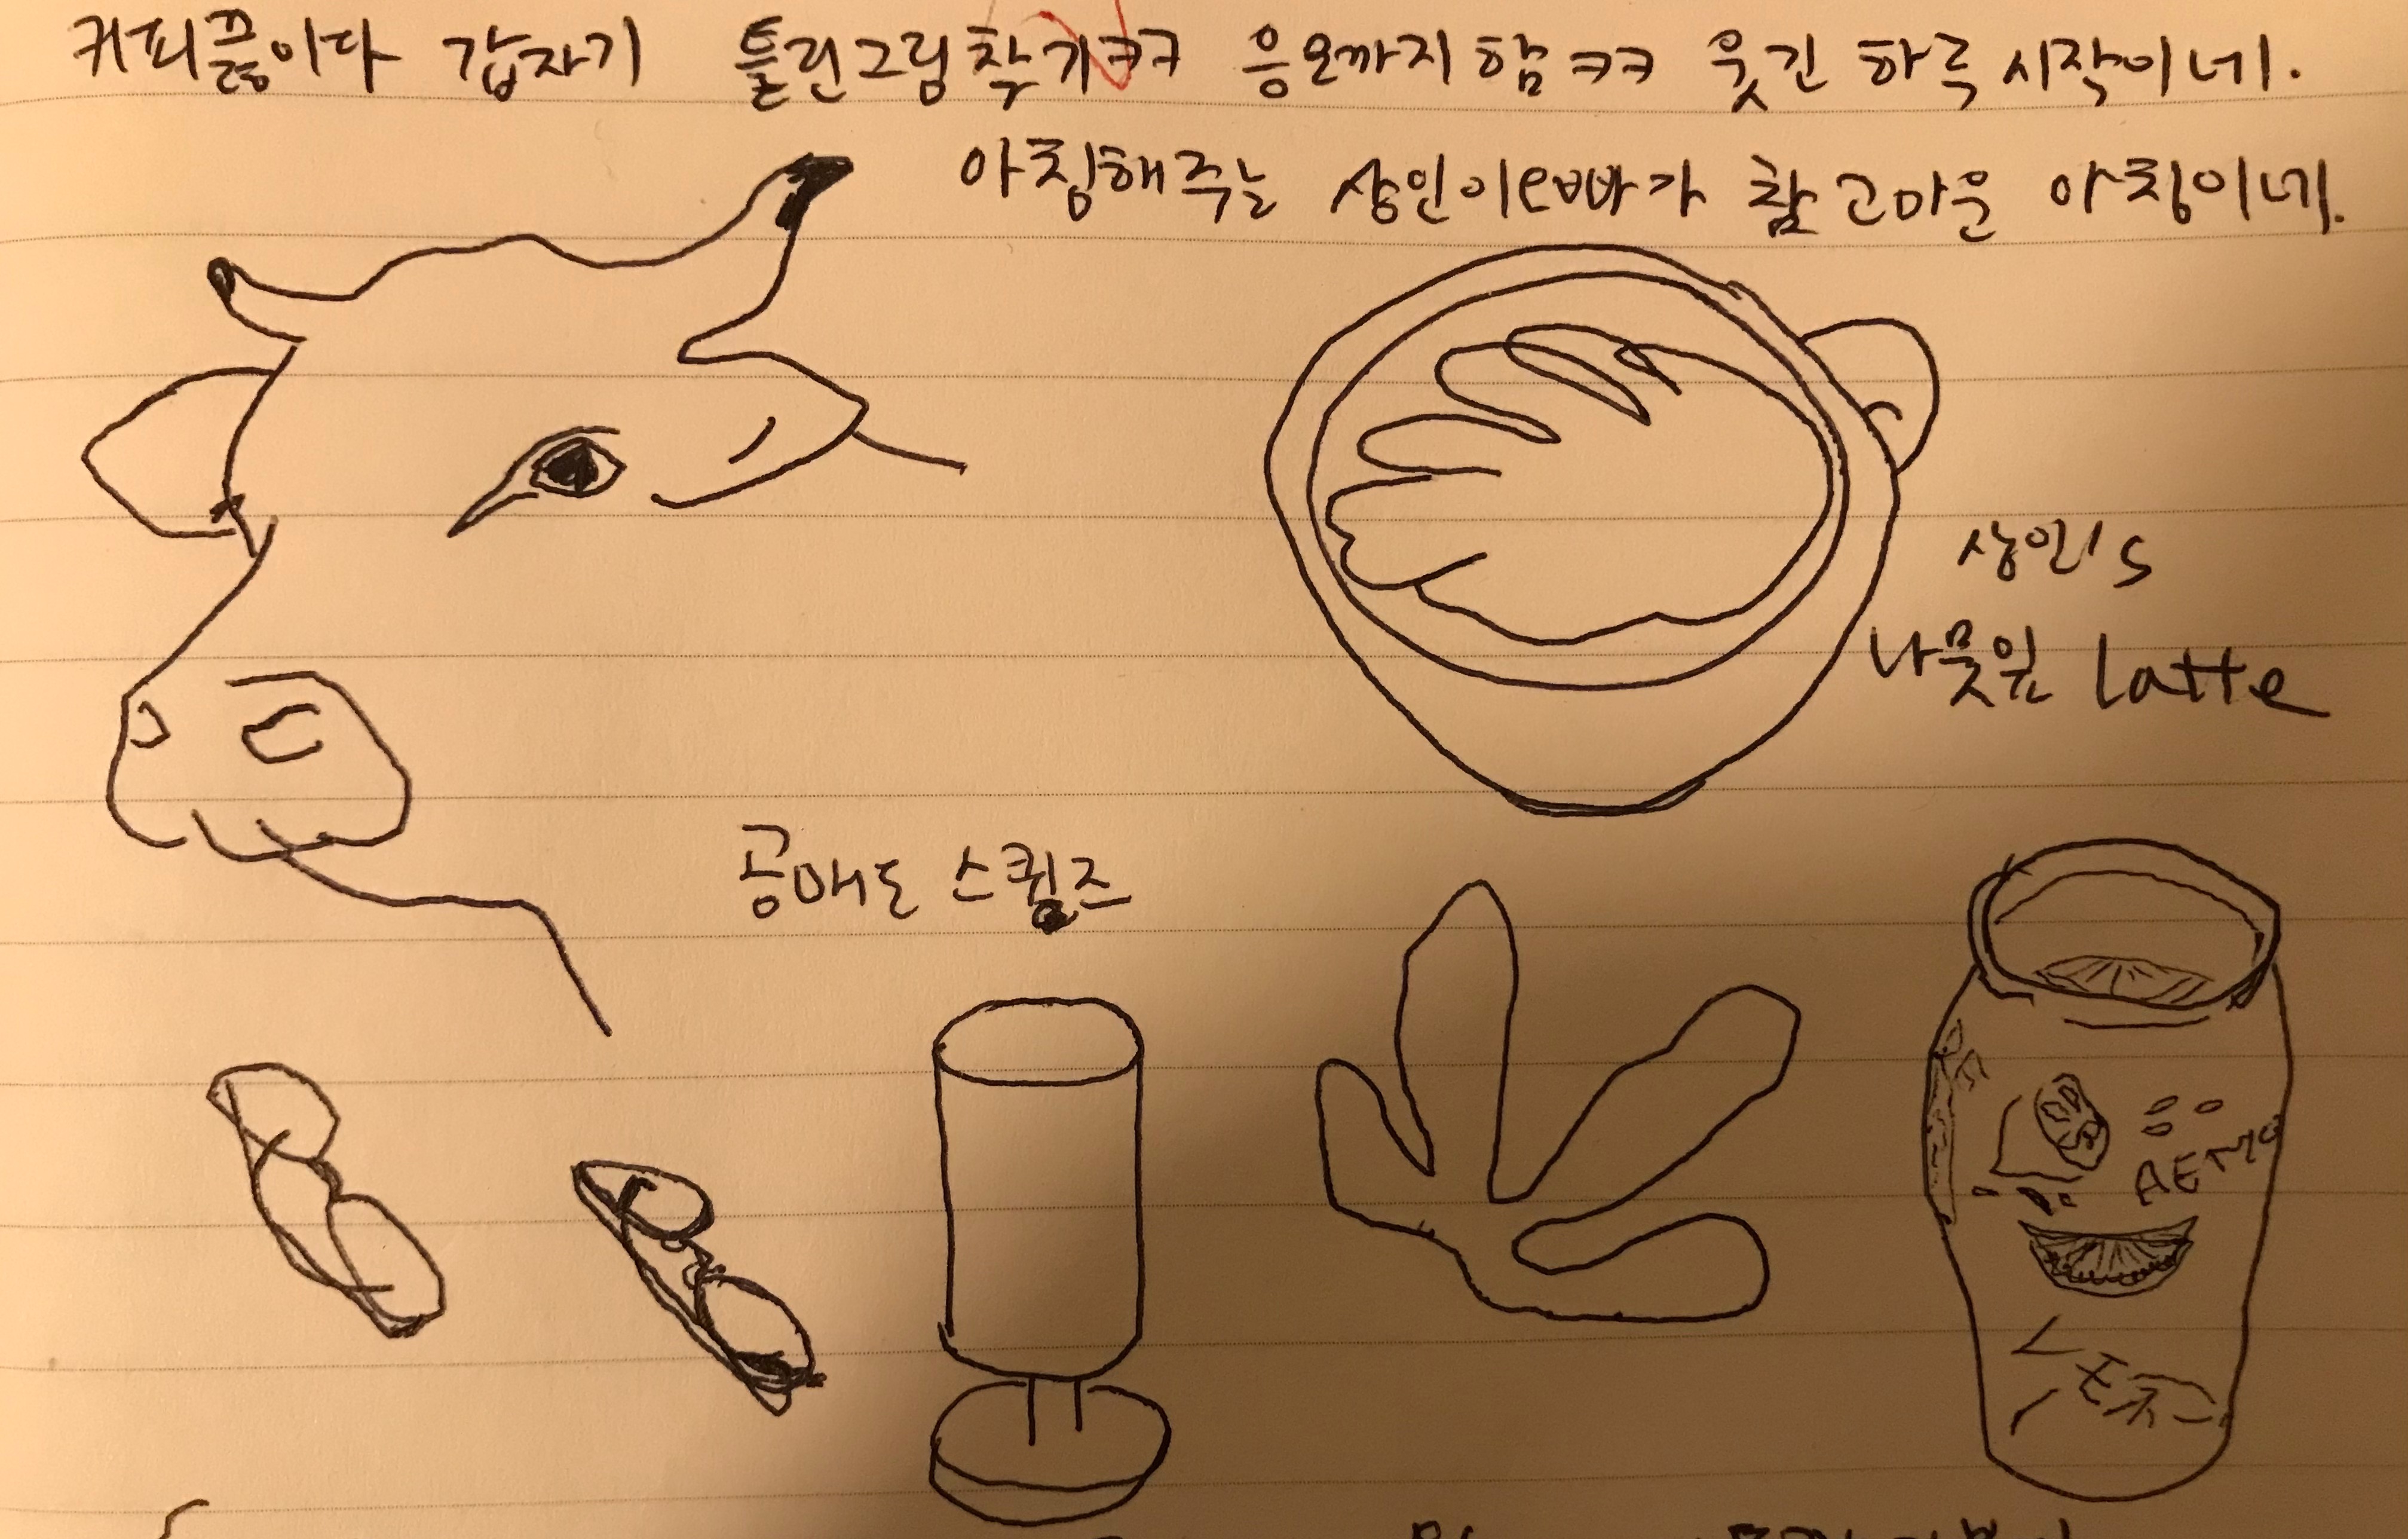 커피끓이다 갑자기 틀린그림찾기ㅋㅋ 응모까지함ㅋㅋ 웃긴 하루시작이네.
아침해주는 상인이 참 고마운 아침이네.
상인's
나뭇잎 latte
공매도 스퀴즈